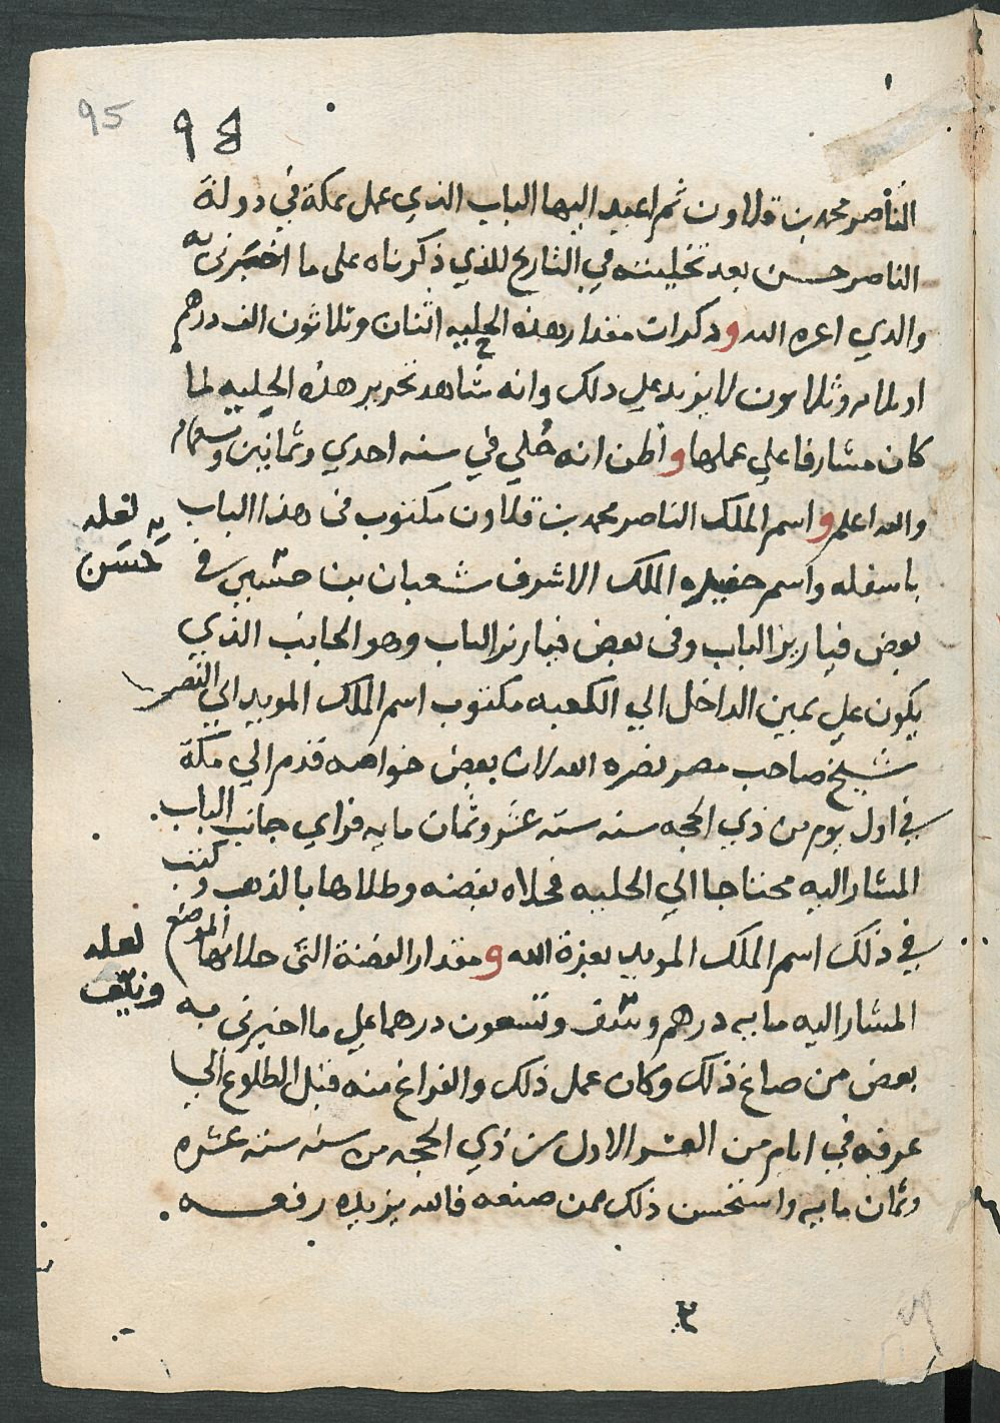 95
٩٤
الناصر محمد بن قلاون ثم اعيد اليها الباب الذي عمل بمكة في دولة
الناصر حسن بعد تخليته في التاريخ الذي ذكرناه على ما اخبرني به
والدي اعزه الله وذكر ان مقدار هذه الحلية اثنان وثلاثون الف درهم
او ثلاثة وثلاثون لا يزيد على ذلك وانه شاهد تحرير هذه الحلية لما
كان مشارفا علي عملها واظن انه حُلي في سنه احدي وثمانين وسبعمايه
والله اعلم واسم الملك الناصر محمد بن قلاون مكتوب في هذا الباب
باسفله واسم حفيده الملك الاشرف شعبان بن حسين في
لعله
حسن
بعض فياريز الباب وفي بعض فيارز الباب وهو الجانب الذي
يكون على يمين الداخل الي الكعبه مكتوب اسم الملك المويد ابي النصر
شيخ صاحب مصر نصره الله لان بعض خواصه قدم الي مكة
في اول يوم من ذي الحجه سنه ستة عشر وثمان مايه فراي جانب الباب
المشار اليه محتاجا الي الحليه فحلاه بفضه وطلاها بالذهب وكتب
في ذلك اسم الملك المويد بعزة الله ومقدار الفضة التي حلا بها الموضع
لعله
ونيف
المشار اليه مايه درهم ونيف وتسعون درهما على ما اخبرني به
بعض من صاغ ذلك وكان عمل ذلك والفراغ منه قبل الطلوع الي
عرفه في ايام من العشر الاول من ذي الحجه من سنة ستة عشره
وثمان مايه واستحسن ذلك ممن صنعه فالله يزيده رفعه